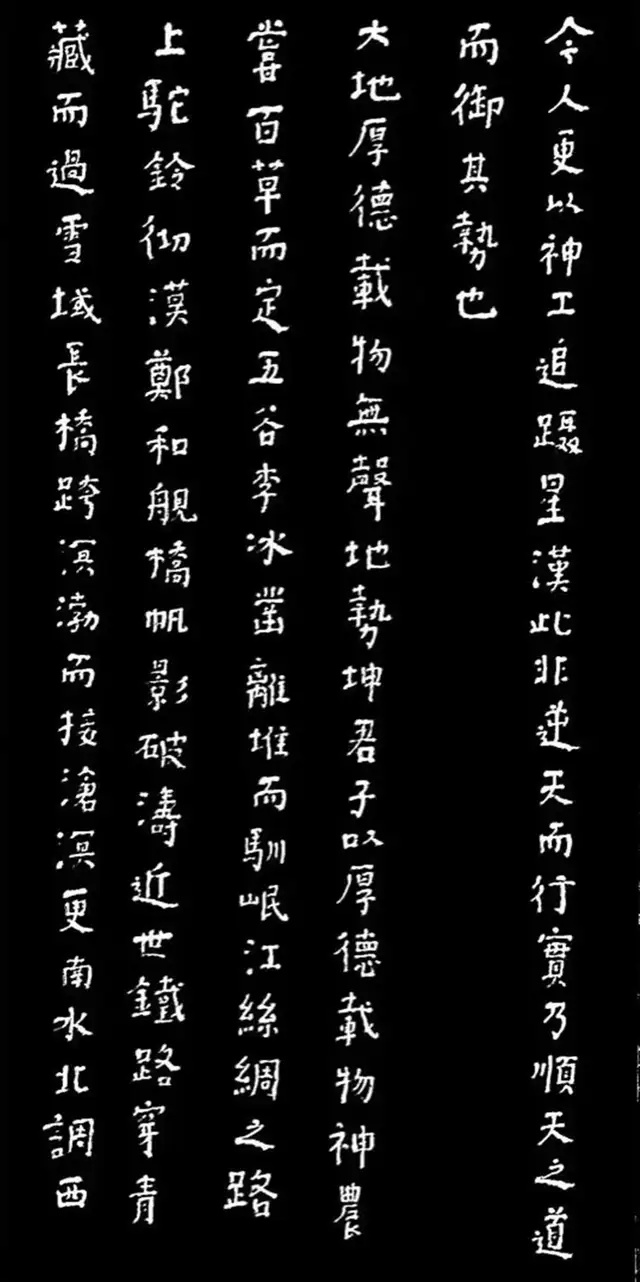 今人更以神工追蹑星漢此非逆天而行實乃順天之道
而御其勢也
大地厚德載物無聲地勢坤君子以厚德載物神農
嘗百草而定五谷李冰凿離堆而馴岷江絲綢之路
上駝鈴彻漠鄭和舰橋帆影破濤近世鐵路穿青
藏而過雪域長橋跨溟渤而接滄溟更南水北調西